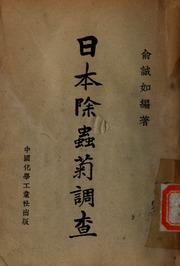 俞誠如編著
日本除蟲菊調查
中國化學工業社出版